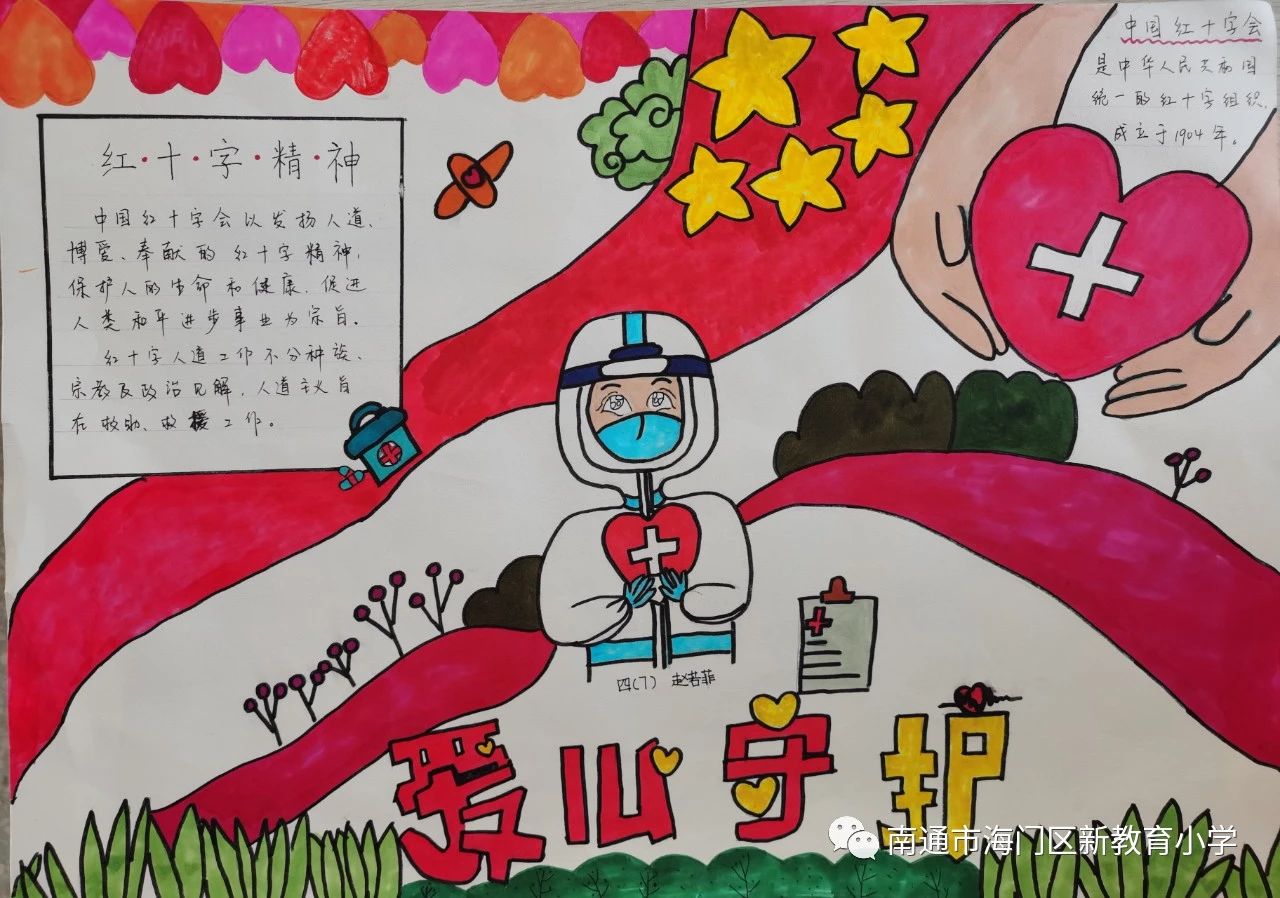 红·十·字·精·神
中国红十字会以发扬人道、
博爱、奉献的红十字精神,
保护人的生命和健康、促进
人类和平进步事业为宗旨。
红十字人道工作不分种族、
宗教及政治见解,人道主义旨
在救助、救援工作。
中国红十字会
是中华人民共和国
统一的红十字组织,
成立于1904年。
四(7) 赵若菲
爱心守护
南通市海门区新教育小学